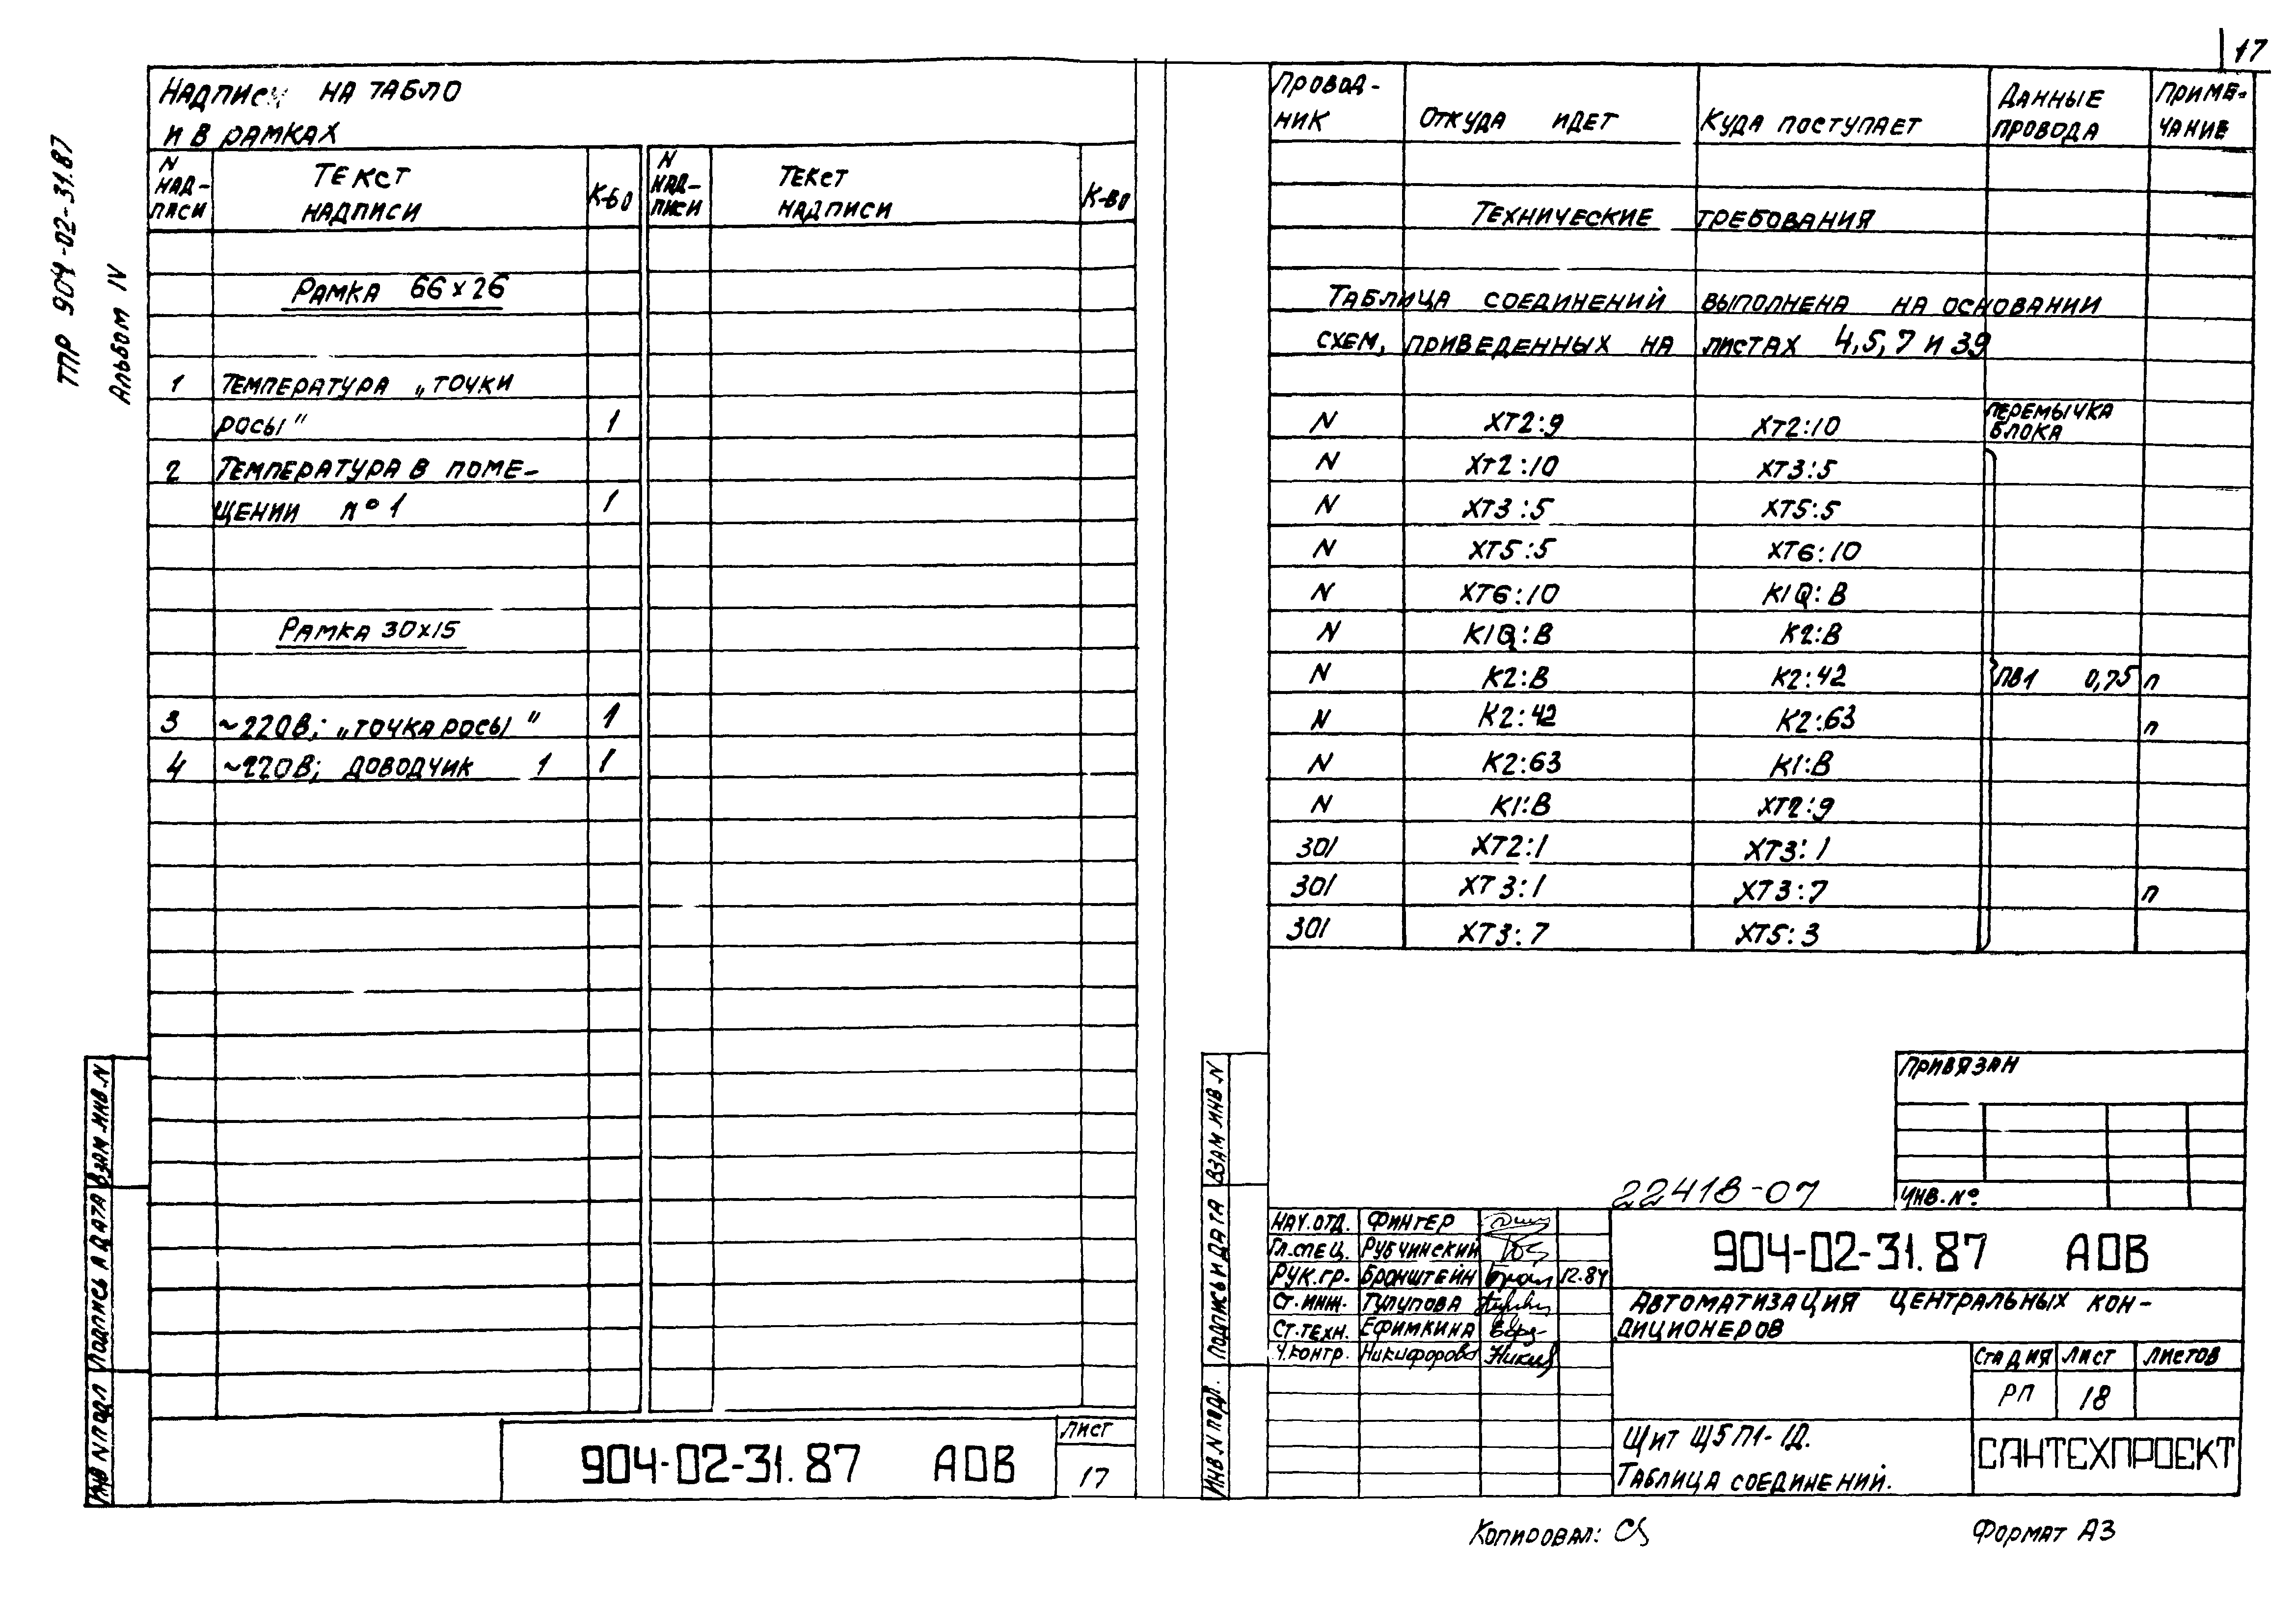 17
ТПР 904-02-31.87
Альбом IV
Надписи на табло
и в рамках
N надписи | Текст надписи | К-во | N надписи | Текст надписи | К-во
Рамка 66×26
1 Температура „точки
росы" 1
2 Температура в поме-
щении n° 1 1
Рамка 30×15
3 ~220В; „точка росы" 1
4 ~220В; доводчик 1 1
Взам.инв.N
Подпись и дата
Инв N подл
904-02-31.87 АОВ
Лист
17
Провод-
ник | Откуда идет | Куда поступает | Данные провода | Приме-
чание
Технические требования
Таблица соединений выполнена на основании
схем, приведенных на листах 4,5,7 и 39
N XT2:9 XT2:10 перемычка блока
N XT2:10 XT3:5
N XT3:5 XT5:5
N XT5:5 XT6:10
N XT6:10 K1Q:B
N K1Q:B K2:B
N K2:B K2:42 ПВ1 0,75 п
N K2:42 K2:63 п
N K2:63 K1:B
N K1:B XT2:9
301 XT2:1 XT3:1
301 XT3:1 XT3:7 п
301 XT3:7 XT5:3
Привязан
Инв.N°
22418-07
Взам инв.N
Подпись и дата
Инв.N подл.
Нач.отд. Фингер
Гл.спец. Рубчинский
Рук.гр. Бронштейн 12.87
Ст.инж. Тулупова
Ст.техн. Ефимкина
Ч.контр. Никифорова
904-02-31.87 АОВ
Автоматизация центральных кон-
диционеров
Стадия Лист Листов
РП 18
Щит Щ5П1-1Д.
Таблица соединений.
САНТЕХПРОЕКТ
Копировал:
Формат А3